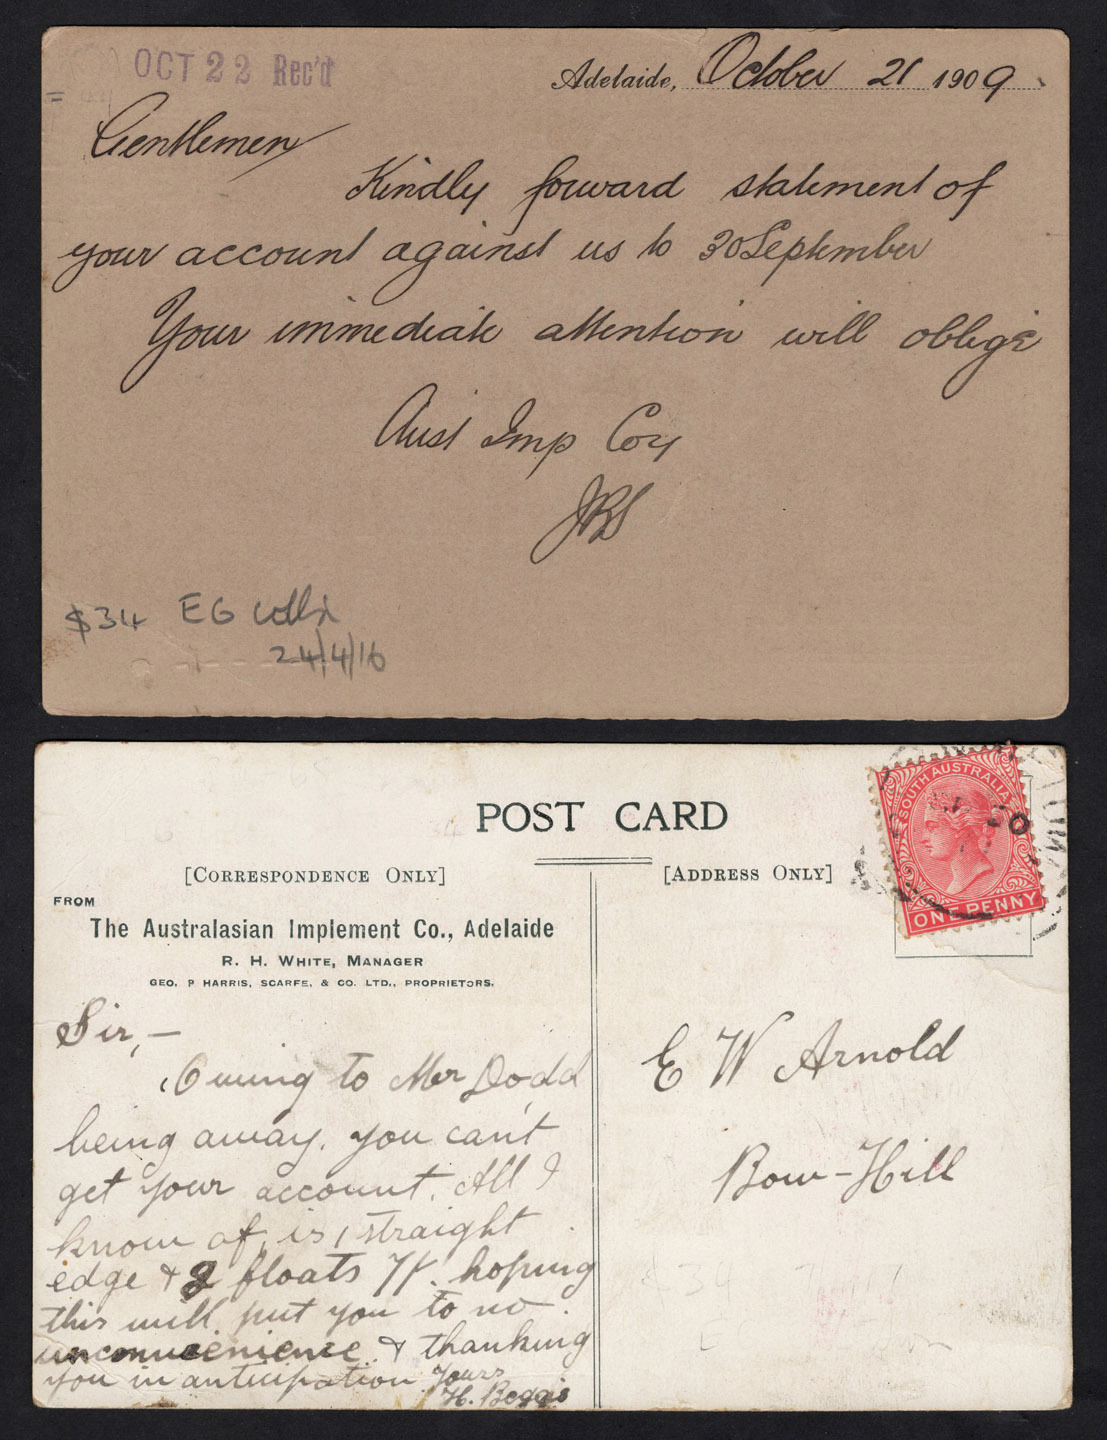 OCT 22 Rec'd
Adelaide, October 21 1909
Gentlemen
Kindly forward statement of
your account against us to 30 September
Your immediate attention will oblige
Aust Imp Coy
$34 EG
24/4/16
POST CARD
[CORRESPONDENCE ONLY]
[ADDRESS ONLY]
SOUTH AUSTRALIA
ONE PENNY
FROM
The Australasian Implement Co., Adelaide
R. H. WHITE, MANAGER
GEO. P HARRIS, SCARFE, & CO. LTD., PROPRIETORS.
Sir, —
Owing to Mr Dodd
being away, you can't
get your account. All I
know of, is 1 straight
edge & 2 floats 7/. hoping
this will put you to no
unconvienience & thanking
you in anticipation Yours
H. Beggs
E W Arnold
Bow-Hill
$34